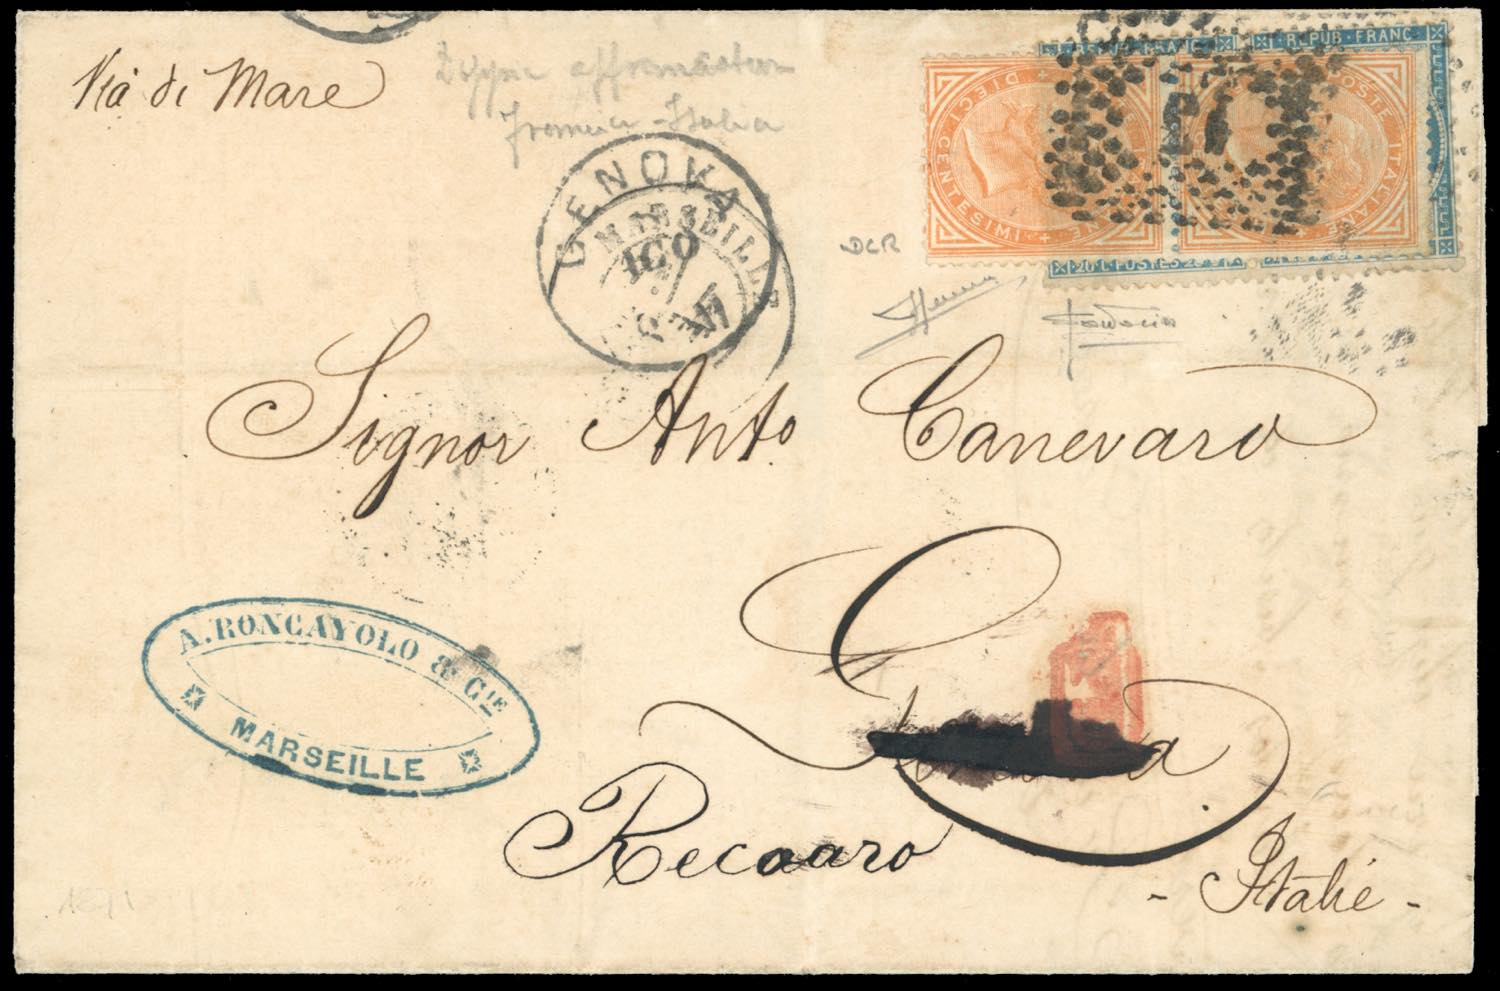 Via di Mare
Francia - Italia
GENOVA
MARSEILLE
AGO
REPUB · FRANC
20 C POSTES
DIECI CENTESIMI
POSTE ITALIANE
DCR
Signor Anto Canevaro
Recoaro
- Italie -
A. RONCAYOLO & CIE
MARSEILLE
1871